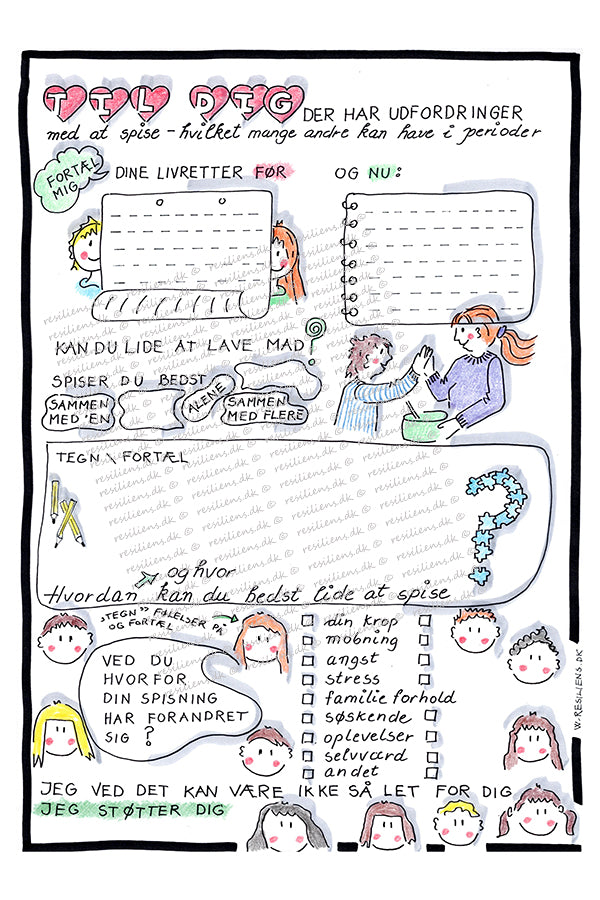 TIL DIG DER HAR UDFORDRINGER
med at spise - hvilket mange andre kan have i perioder
FORTÆL
MIG
DINE LIVRETTER FØR
OG NU:
KAN DU LIDE AT LAVE MAD?
SPISER DU BEDST
SAMMEN
MED 'EN
ALENE
SAMMEN
MED FLERE
TEGN \ FORTÆL
og hvor
Hvordan kan du bedst lide at spise
?
"TEGN" FØLELSER PÅ
OG FORTÆL
VED DU
HVORFOR
DIN SPISNING
HAR FORANDRET
SIG?
din krop
mobning
angst
stress
familieforhold
søskende
oplevelser
selvværd
andet
JEG VED DET KAN VÆRE IKKE SÅ LET FOR DIG
JEG STØTTER DIG
W-RESILIENS.DK
resiliens.dk ©